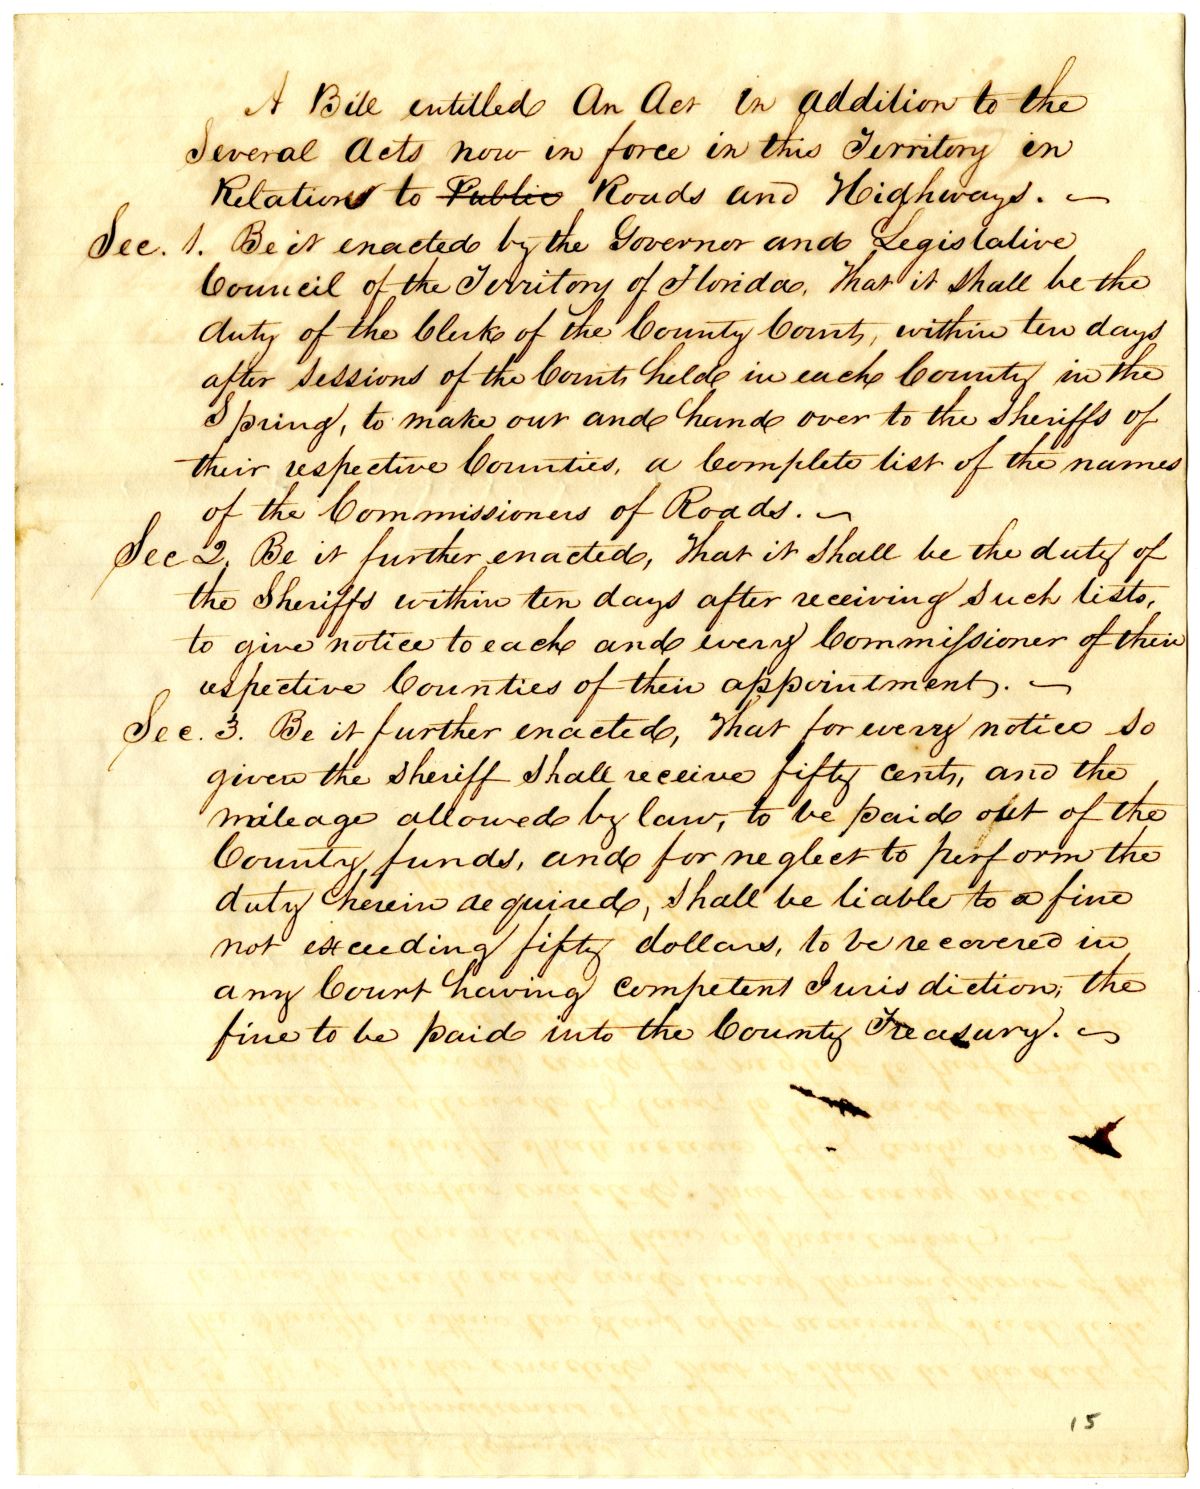 A Bill entitled An Act in addition to the
Several Acts now in force in this Territory in
Relation to Public Roads and Highways.
Sec. 1. Be it enacted by the Governor and Legislative
Council of the Territory of Florida, That it shall be the
duty of the Clerk of the County Court, within ten days
after sessions of the Courts held in each County in the
Spring, to make out and hand over to the Sheriffs of
their respective Counties, a Complete list of the names
of the Commissioners of Roads.
Sec 2. Be it further enacted, That it shall be the duty of
the Sheriffs within ten days after receiving such lists,
to give notice to each and every Commissioner of their
respective Counties of their appointment.
Sec. 3. Be it further enacted, That for every notice so
given the sheriff shall receive fifty cents, and the
mileage allowed by law, to be paid out of the
County funds, and for neglect to perform the
duty herein required, shall be liable to a fine
not exceeding fifty dollars, to be recovered in
any Court having competent Jurisdiction, the
fine to be paid into the County Treasury.
15